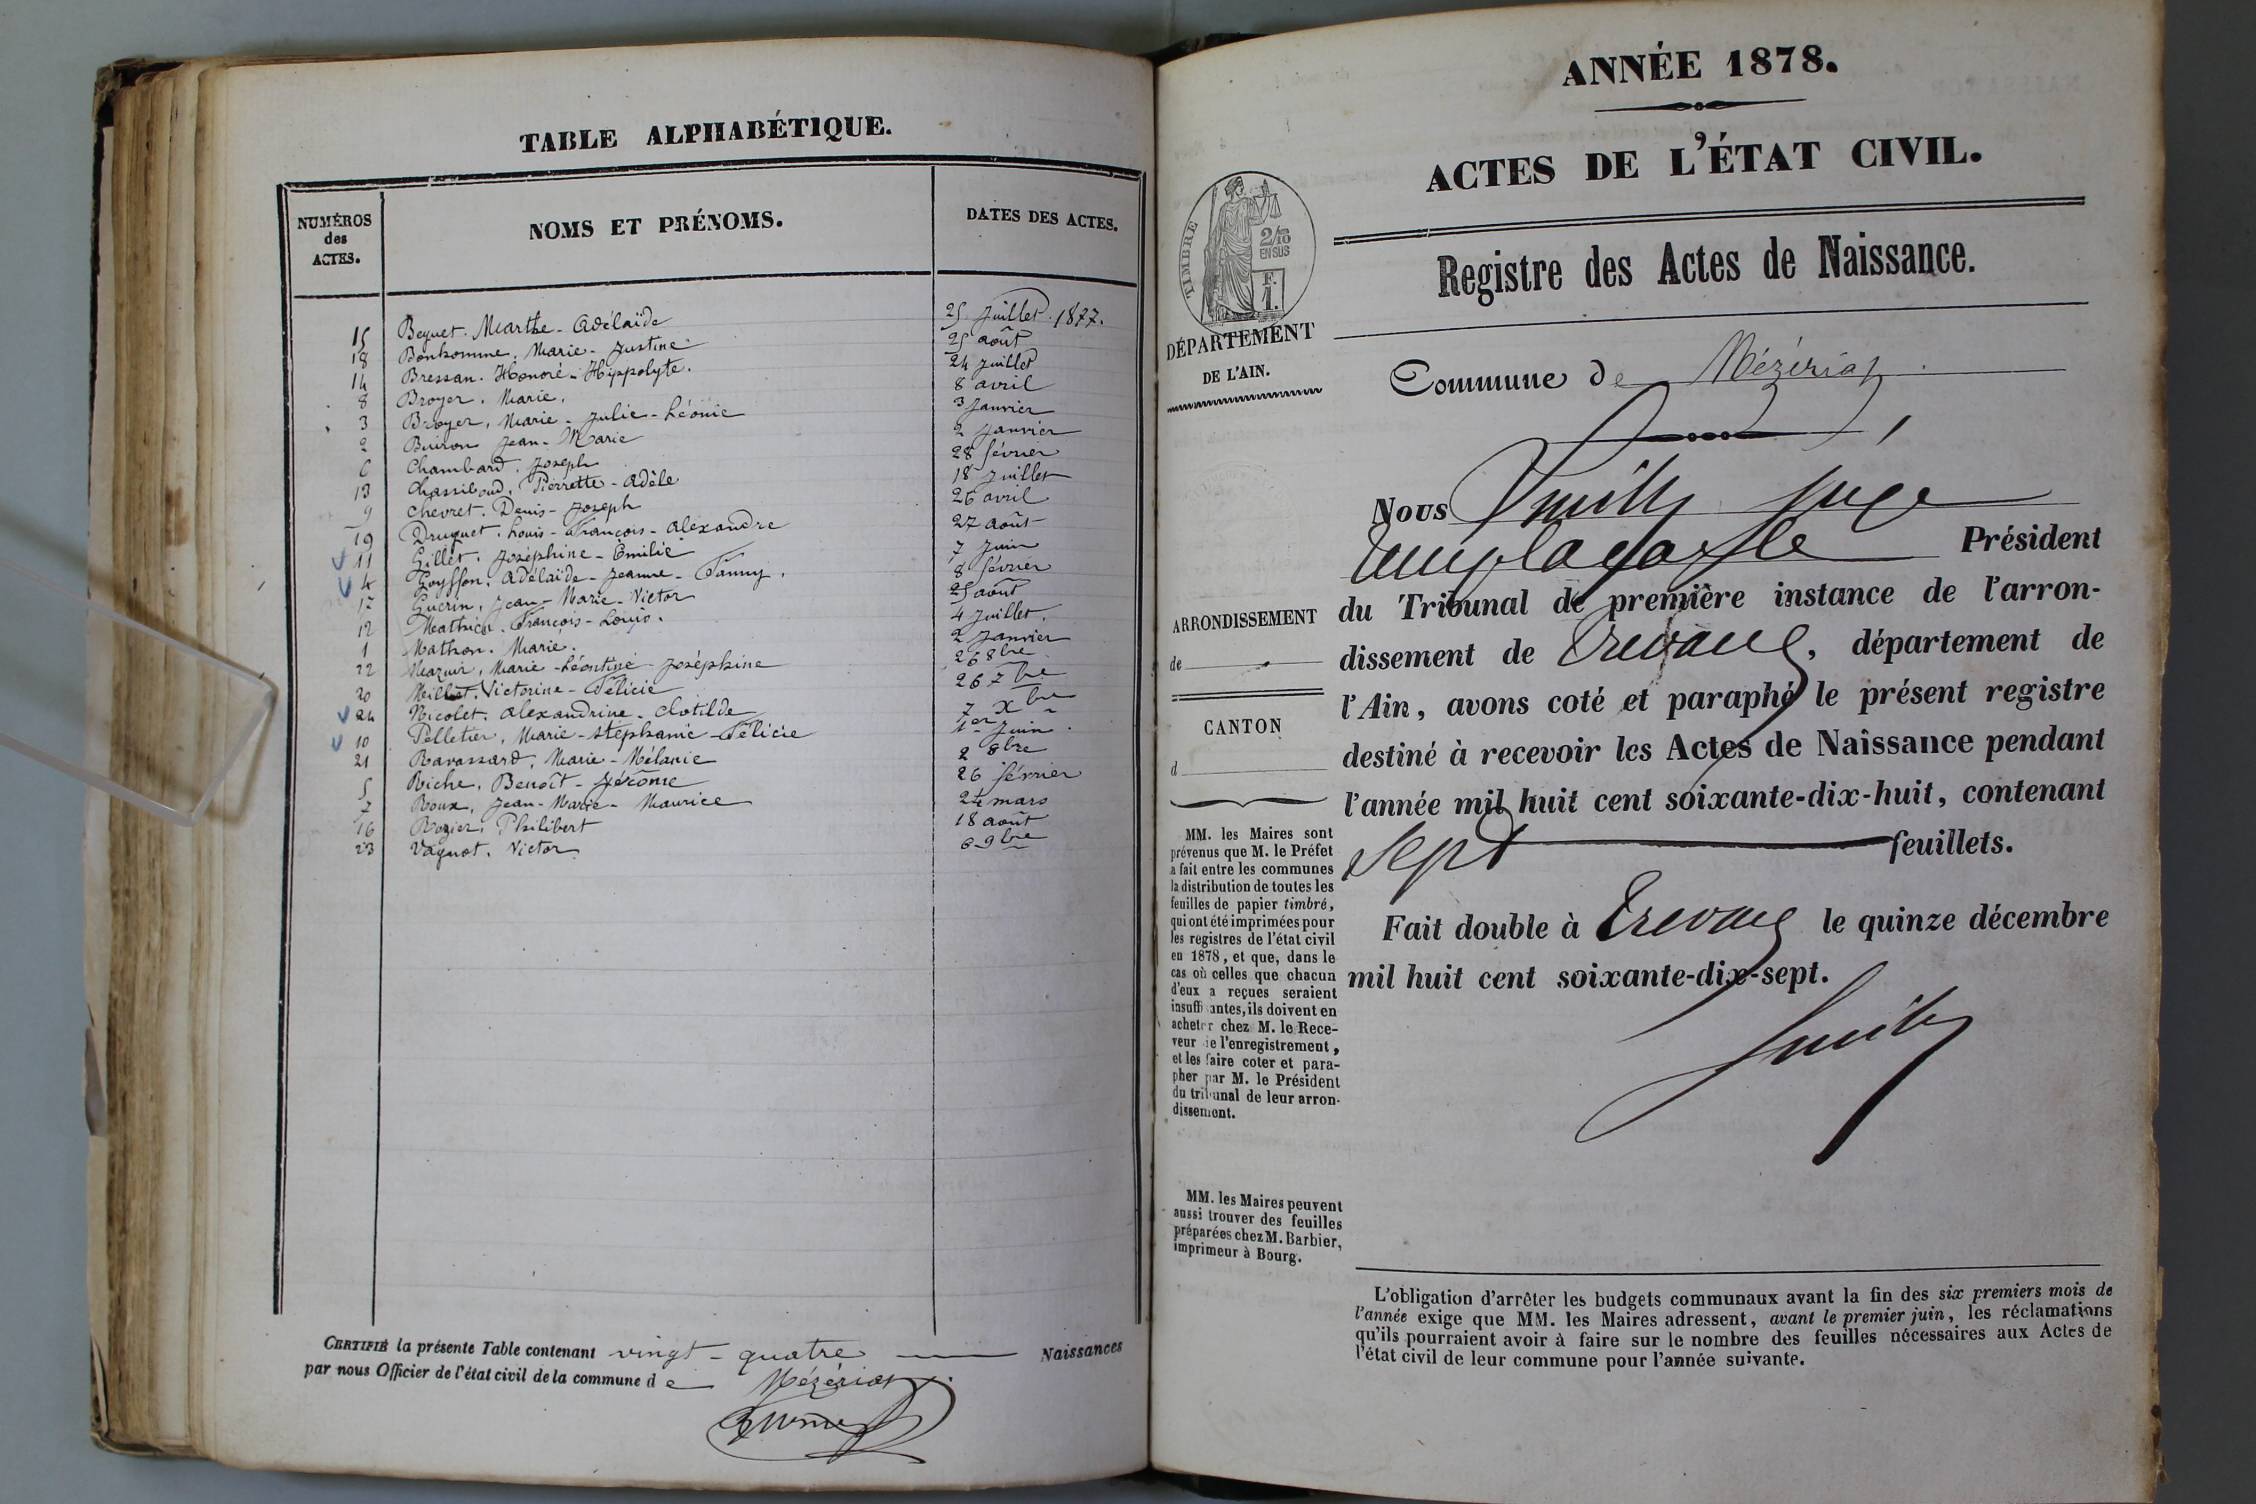 TABLE ALPHABÉTIQUE.
NUMÉROS des ACTES. NOMS ET PRÉNOMS. DATES DES ACTES.
15 Beguet. Marthe - Adélaïde 25 Juillet 1877.
18 Bonhomme, Marie - Justine 25 août
14 Bressan. Honoré - Hippolyte. 24 Juillet
8 Broyer. Marie. 8 avril
3 Broyer, Marie - Julie - Léonie 3 Janvier
2 Buiron Jean - Marie 2 Janvier
6 Chambard. Joseph 28 février
13 Chassiboud, Pierrette - Adèle 18 Juillet
9 Chevret. Denis - Joseph 26 avril
19 Druguet. Louis - François - Alexandre 27 août
11 Gillet. Joséphine - Emilie 7 Juin
4 Goyffon. Adélaïde - Jeanne - Fanny. 8 février
17 Guérin, Jean - Marie - Victor 25 août
12 François - Louis. 4 Juillet.
1 Mathon. Marie. 2 Janvier
22 Mazuir, Marie - Léontine - Joséphine 26 8bre
20 Millet. Victorine - Félicie 26 7bre
24 Nicolet. Alexandrine - Clotilde 7 Xbre
10 Pelletier, Marie - Stéphanie - Félicie 1er Juin.
21 Ravassard, Marie - Mélanie 2 8bre
5 Riche, Benoît - Jérôme 26 février
7 Roux, Jean - Marie - Maurice 24 mars
16 Rozier, Philibert 18 août
23 Vaguot. Victor 6 9bre
CERTIFIÉ la présente Table contenant vingt-quatre Naissances
par nous Officier de l'état civil de la commune de Mézériat.
ANNÉE 1878.
ACTES DE L'ÉTAT CIVIL.
Registre des Actes de Naissance.
TIMBRE
2/10
EN SUS
F.
1.
DÉPARTEMENT
DE L'AIN.
Commune de Mézériat
Nous Smith juge
Président
du Tribunal de première instance de l'arron-
dissement de Trévoux, département de
l'Ain, avons coté et paraphé le présent registre
destiné à recevoir les Actes de Naissance pendant
l'année mil huit cent soixante-dix-huit, contenant
sept feuillets.
Fait double à Trévoux le quinze décembre
mil huit cent soixante-dix-sept.
ARRONDISSEMENT
de
CANTON
d
MM. les Maires sont
prévenus que M. le Préfet
a fait entre les communes
la distribution de toutes les
feuilles de papier timbré,
qui ont été imprimées pour
les registres de l'état civil
en 1878, et que, dans le
cas où celles que chacun
d'eux a reçues seraient
insuffisantes, ils doivent en
acheter chez M. le Rece-
veur de l'enregistrement,
et les faire coter et para-
pher par M. le Président
du tribunal de leur arron-
dissement.
MM. les Maires peuvent
aussi trouver des feuilles
préparées chez M. Barbier,
imprimeur à Bourg.
L'obligation d'arrêter les budgets communaux avant la fin des six premiers mois de
l'année exige que MM. les Maires adressent, avant le premier juin, les réclamations
qu'ils pourraient avoir à faire sur le nombre des feuilles nécessaires aux Actes de
l'état civil de leur commune pour l'année suivante.